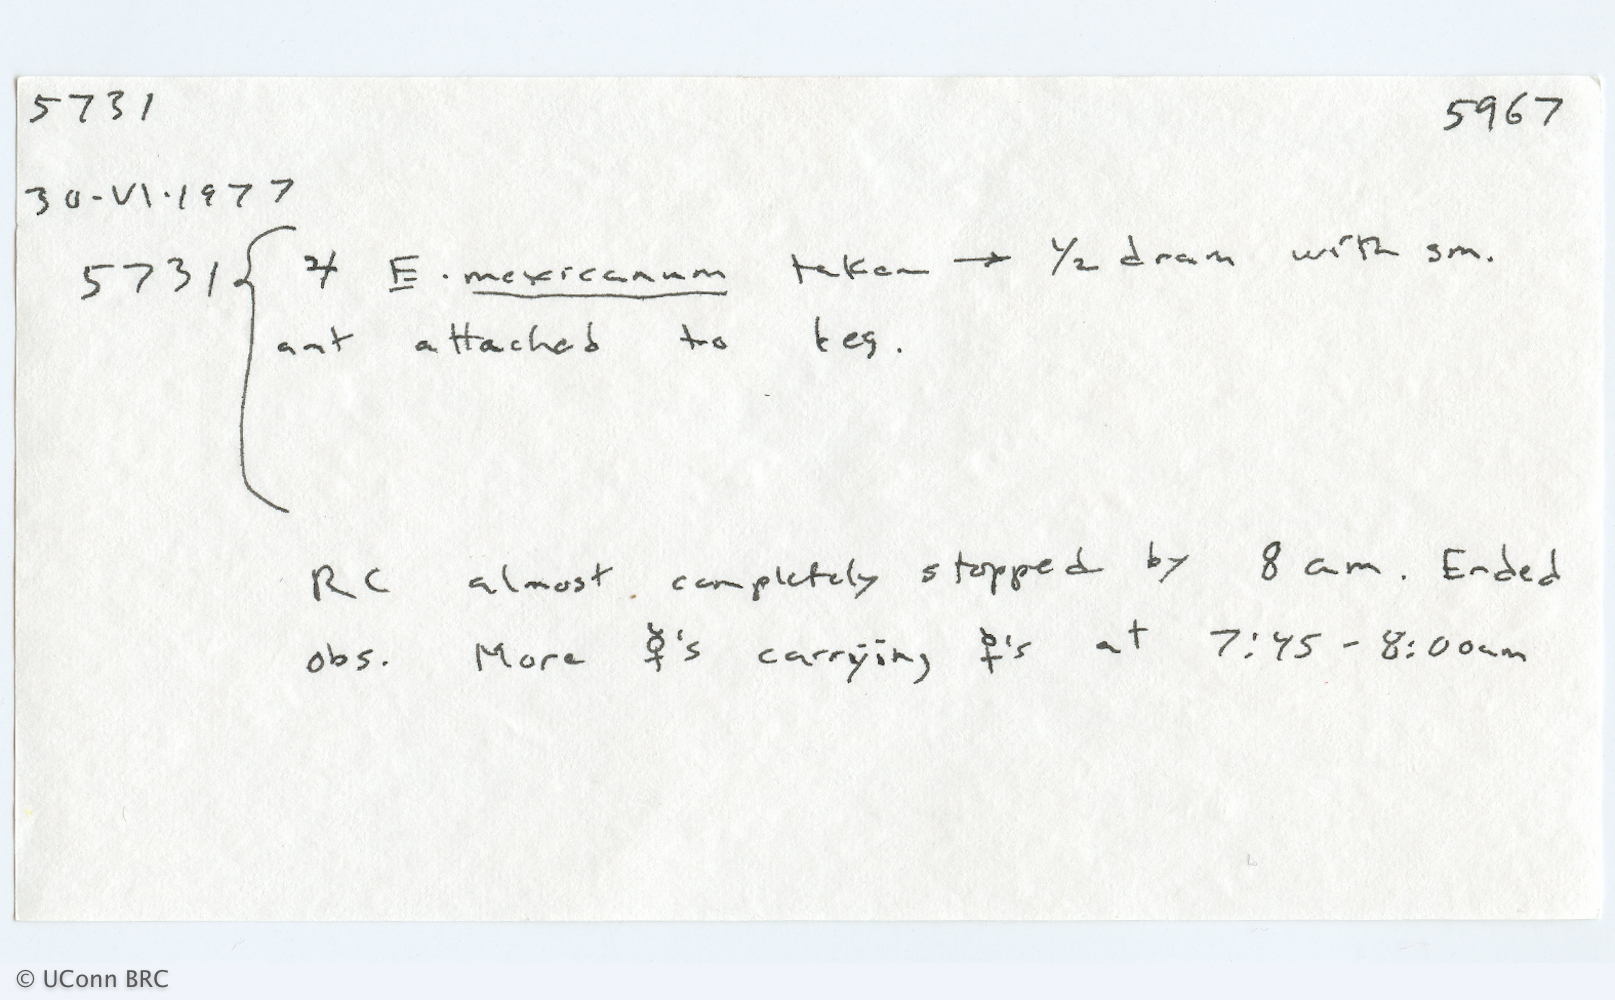 5731 5967
30-VI-1977
5731 { ♃ E. mexicanum taken → 1/2 dram with sm.
ant attached to leg.
RC almost completely stopped by 8 am. Ended
obs. More ☿'s carrying ☿'s at 7:45 - 8:00am
© UConn BRC